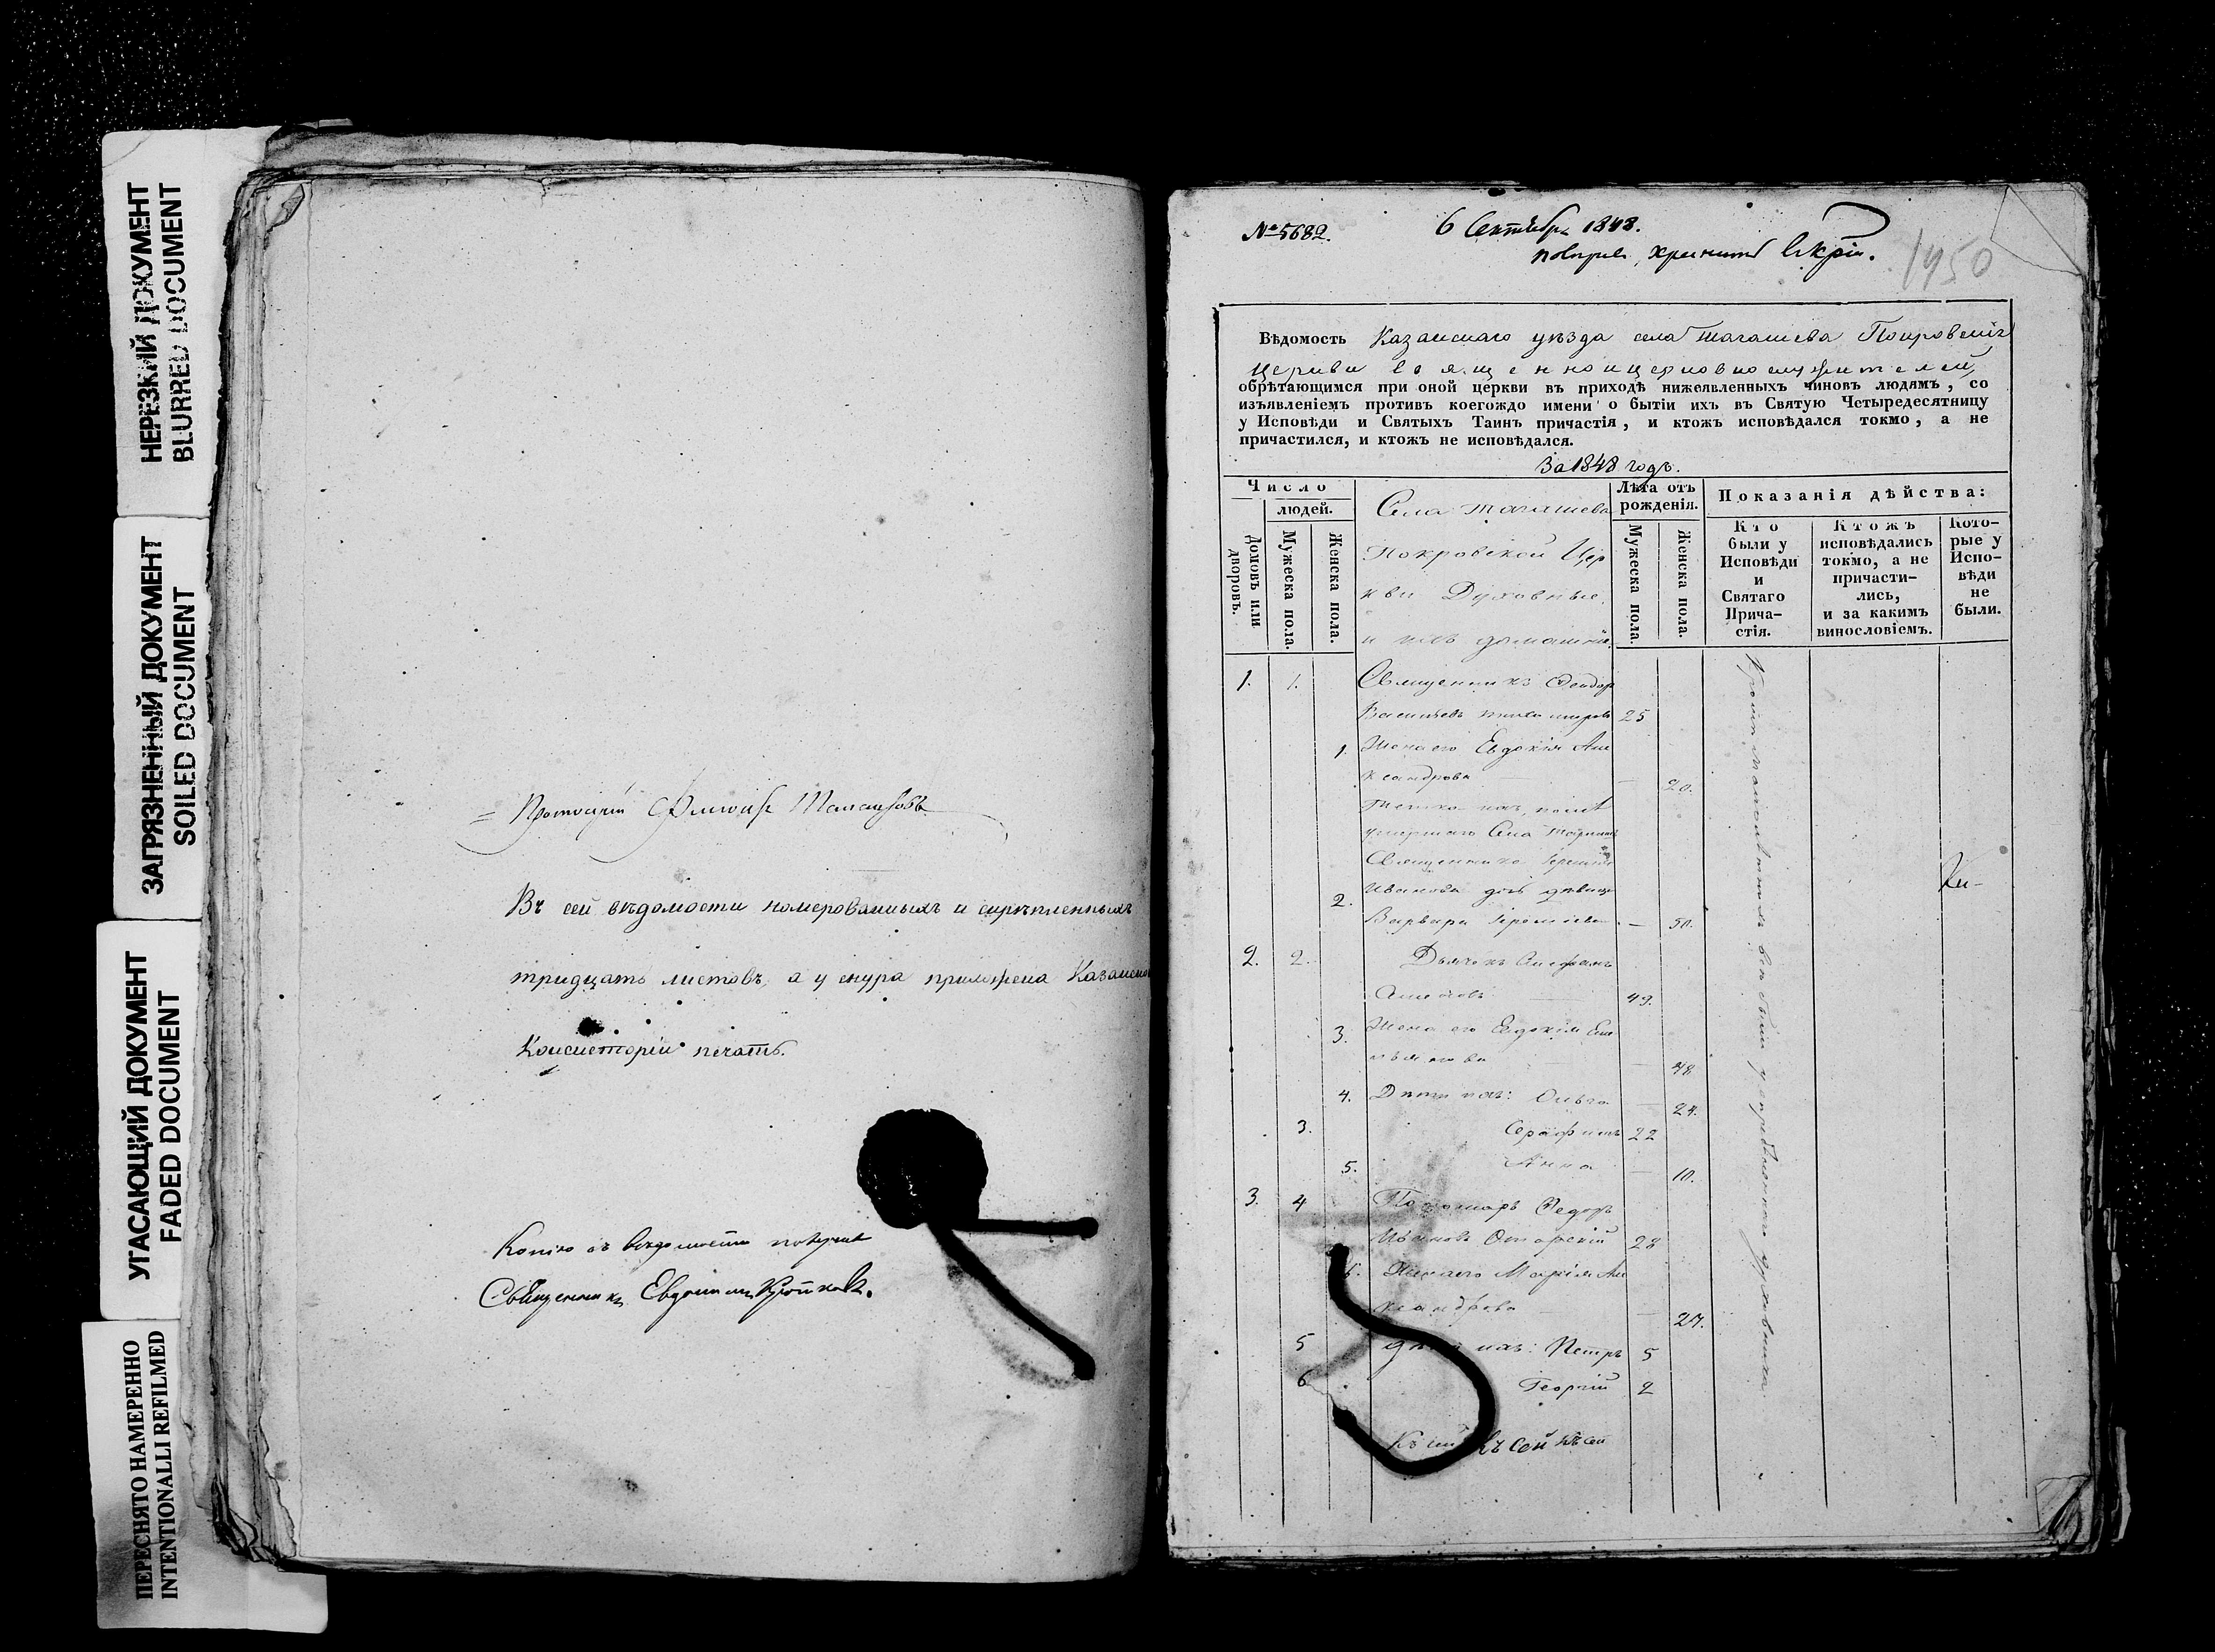 НЕРЕЗКИЙ ДОКУМЕНТ
BLURRED DOCUMENT
ЗАГРЯЗНЕННЫЙ ДОКУМЕНТ
SOILED DOCUMENT
УГАСАЮЩИЙ ДОКУМЕНТ
FADED DOCUMENT
ПЕРЕСНЯТО НАМЕРЕННО
INTENTIONALLI REFILMED
Въ сей вѣдомости номерованныхъ и скрѣпленныхъ
тридцать листовъ, а у снура приложена Казанской
Консисторіи печать.
Копію съ вѣдомости получилъ
Священникъ Евдоким
№ 5682.
6 Сентября 1848.
хранить
1950
Вѣдомость Казанскаго уѣзда села Тагашева Покровскія
Церкви священноицерковнослужителей,
обрѣтающимся при оной церкви въ приходѣ нижеявленныхъ чиновъ людямъ, со
изъявленіемъ противъ коегождо имени о бытіи ихъ въ Святую Четыредесятницу
у Исповѣди и Святыхъ Таинъ причастія, и ктожъ исповѣдался токмо, а не
причастился, и ктожъ не исповѣдался.
За 1848 годъ.
Число
людей.
Домовъ или дворовъ.
Мужеска пола.
Женска пола.
Села Тагашева
Покровской Цер
кви Духовные
и ихъ домашніе.
Лѣта отъ
рожденія.
Мужеска пола.
Женска пола.
Показанія дѣйства:
Кто
были у
Исповѣди
и
Святаго
Прича-
стія.
Ктожъ
исповѣдались
токмо, а не
причасти-
лись,
и за какимъ
винословіемъ.
Кото-
рые у
Испо-
вѣди
не
были.
1. 1. Священникъ Феодоръ
Васильевъ 25
1. Жена его Евдокія Але
ксандрова — 20.
Тетка ихъ,
умершаго Села
Священника
2. Иванова дочь дѣвица
Варвара — 50.
2. 2. Дьячекъ Стефанъ
49.
3. Жена его Евдокія Еме
льянова — 48.
4. Дѣти ихъ: Ольга — 24.
3. Серафимъ 22
5. Анна — 10.
3. 4 Пономарь Федоръ
Ивановъ 28
6. Жена его Марія Але
ксандрова — 27.
5 Дѣти ихъ: Петръ 5
6 Георгій 2
Къ сей къ сей къ сей
Кромѣ малолѣтнихъ всѣ были у духовника